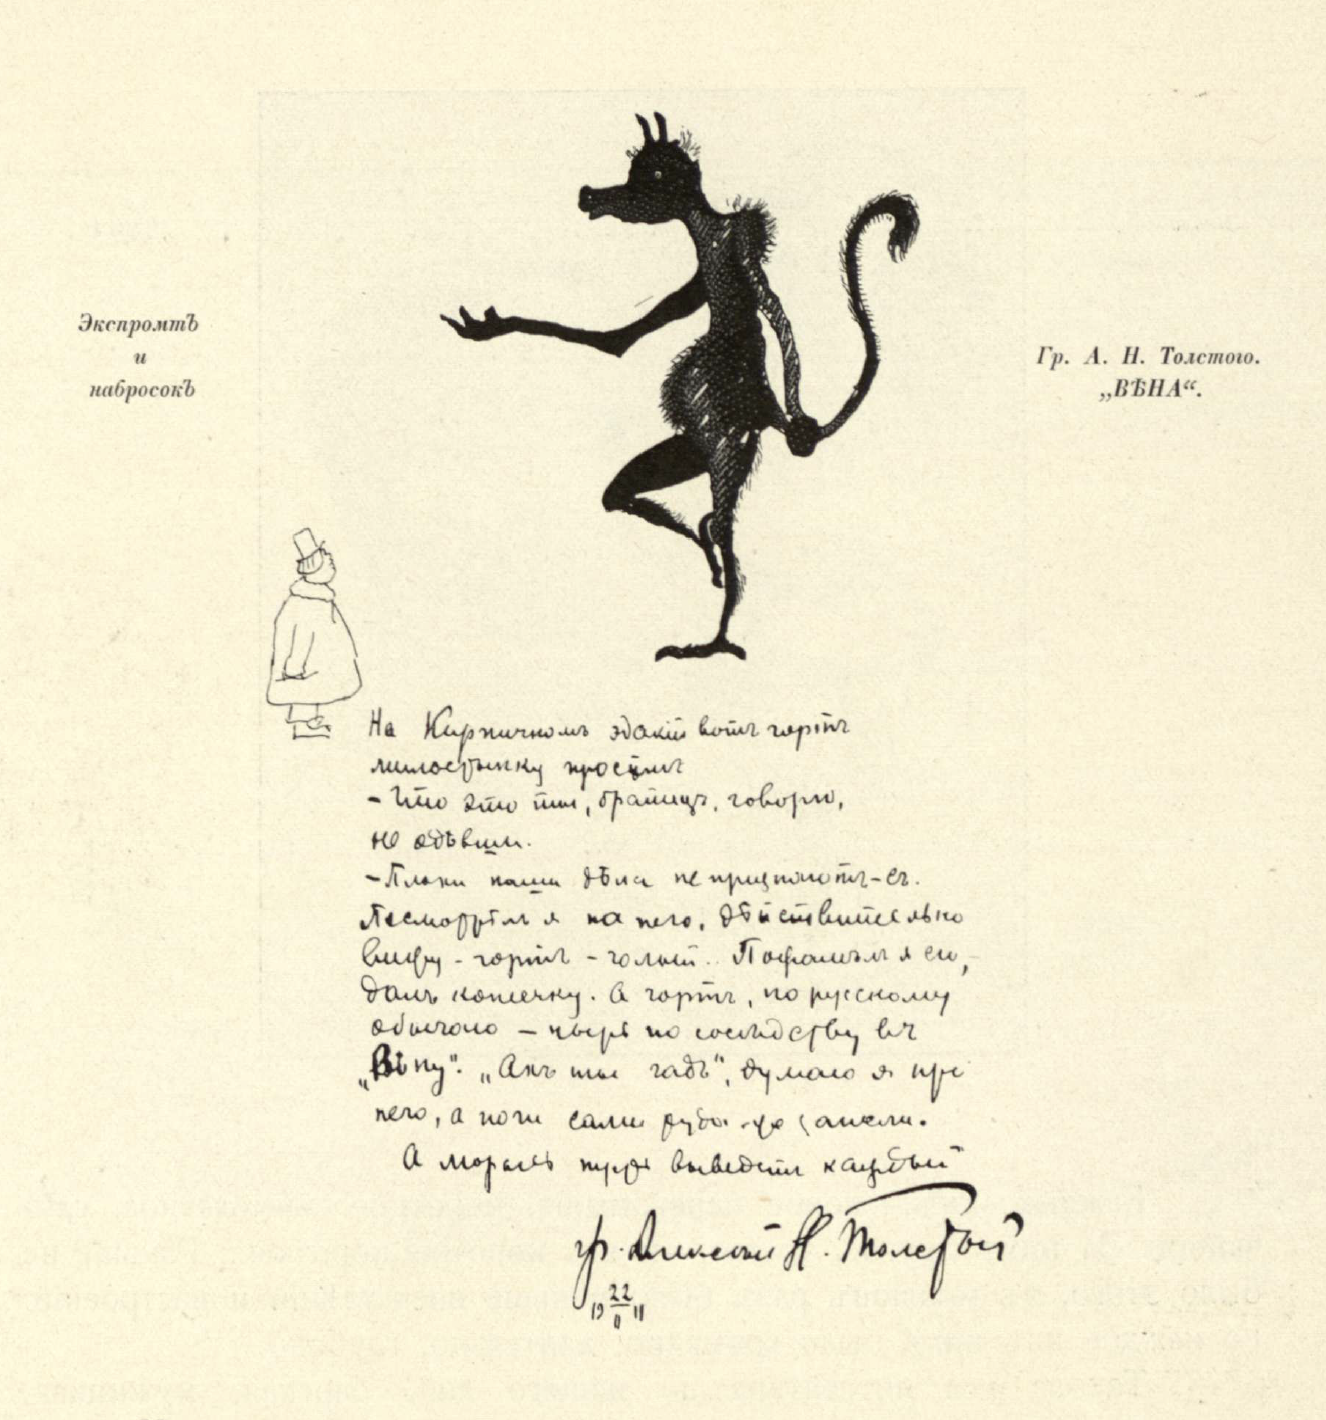 Экспромтъ
и
набросокъ
Гр. А. Н. Толстого.
„ВѢНА“.
На Кирпичномъ эдакій вотъ чортъ
милостынку проситъ
– Что это ты, братецъ, говорю,
не одѣвши.
– Плохи наши дѣла не признаютъ-съ.
Посмотрѣлъ я на него, дѣйствительно
вижу – чортъ – голый. Пожалѣлъ я его,
далъ копеечку. А чортъ, по русскому
обычаю – нырь по сосѣдству въ
„Вѣну“. „Ахъ ты гадъ“, думаю я про
него, а ноги сами туда же
А мораль пусть выведетъ каждый
гр. Алексѣй Н. Толстой
19 22/II 11